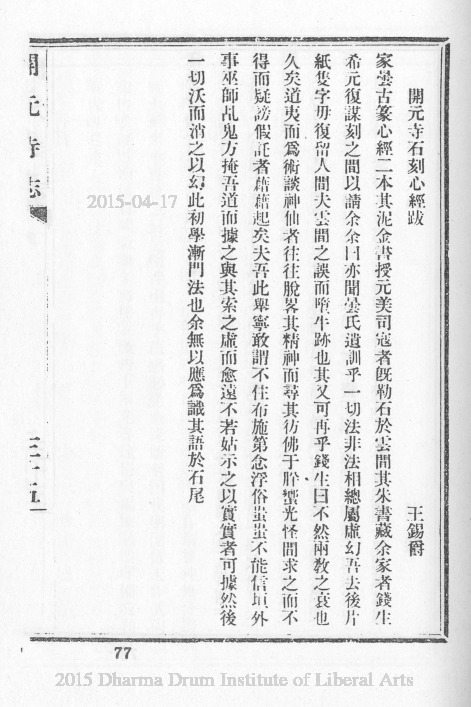 開元寺石刻心經跋
王錫爵
家曇古篆心經二本其泥金書授元美司寇者既勒石於雲間其朱書藏余家者錢生
希元復謀刻之間以請余余曰亦聞曇氏遺訓乎一切法非法相總屬虛幻吾去後片
紙隻字毋復留人間夫雲間之誤而墮牛跡也其又可再乎錢生曰不然兩教之衰也
久矣道夷而為術談神仙者往往脫畧其精神而尋其彷佛于肸蠁光怪間求之而不
得而疑謗假託者藉藉起矣夫吾此舉寧敢謂不住布施第念浮俗蚩蚩不能信垣外
事巫師乩鬼方掩吾道而據之與其索之虛而愈遠不若姑示之以實實者可據然後
一切沃而消之以幻此初學漸門法也余無以應為識其語於石尾
開元寺志
三十五
77
2015-04-17
2015 Dharma Drum Institute of Liberal Arts